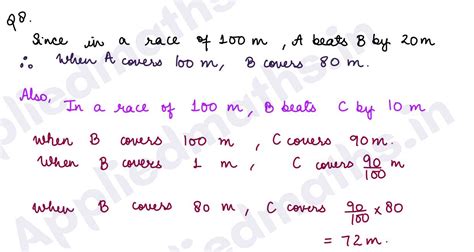 Q8.
Since in a race of 100 m, A beats B by 20m
∴ When A covers 100 m, B covers 80 m.
Also, In a race of 100 m, B beats C by 10 m
When B covers 100 m, C covers 90 m.
When B covers 1 m, C covers 90/100 m
When B covers 80 m, C covers 90/100 × 80
= 72 m.
Appliedmaths.in
Appliedmaths.in